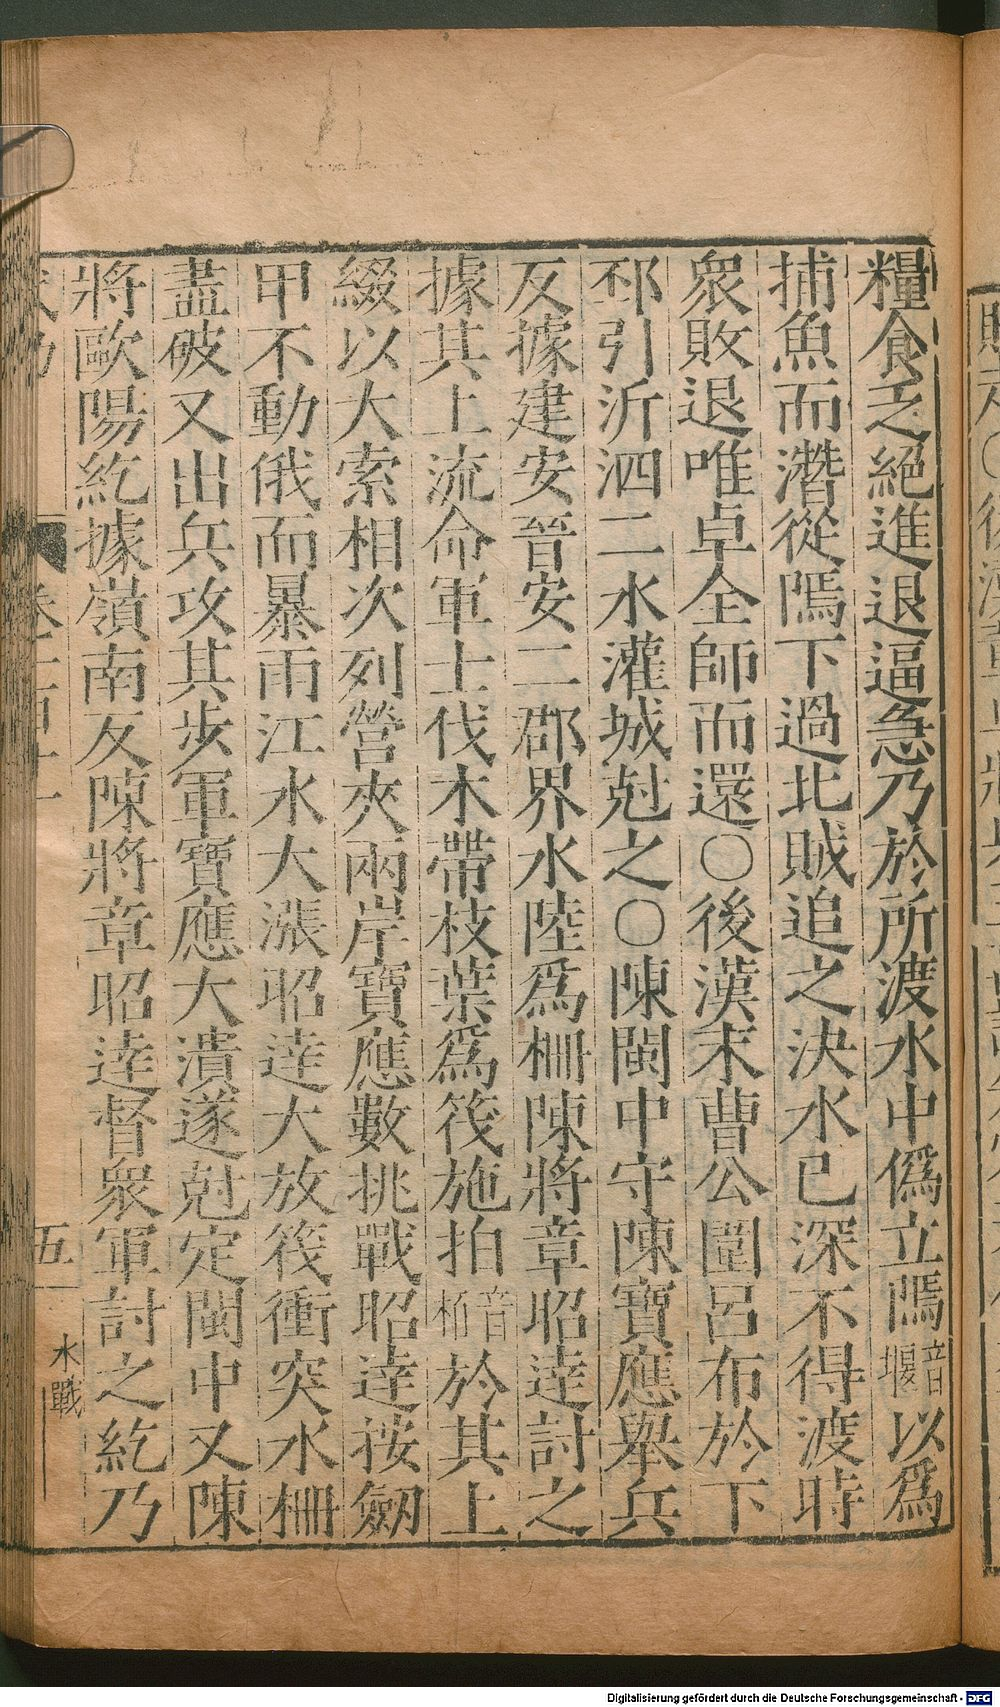 糧食乏絕進退逼急乃於所渡水中僞立隝音堰以爲
捕魚而潛從隝下過北賊追之決水已深不得渡時
衆敗退唯卓全師而還〇後漢末曹公圍呂布於下
邳引沂泗二水灌城尅之〇陳閩中守陳寶應舉兵
反據建安晉安二郡界水陸爲柵陳將章昭達討之
據其上流命軍士伐木帶枝葉爲筏施拍音栢於其上
綴以大索相次列營夾兩岸寶應數挑戰昭達按劒
甲不動俄而暴雨江水大漲昭達大放筏衝突水柵
盡破又出兵攻其步軍寶應大潰遂尅定閩中又陳
將歐陽紇據嶺南反陳將章昭達督衆軍討之紇乃
五
水戰
Digitalisierung gefördert durch die Deutsche Forschungsgemeinschaft - DFG